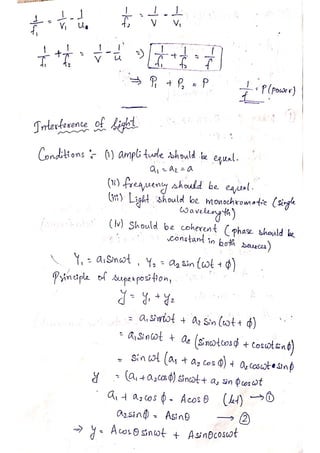 1/f₁ = 1/v₁ - 1/u    1/f₂ = 1/v - 1/v₁
1/f₁ + 1/f₂ = 1/v - 1/u ⇒ 1/f₁ + 1/f₂ = 1/f
⇒ P₁ + P₂ = P    1/f = P (Power)
Interference of Light
Conditions :- (i) amplitude should be equal.
a₁ = a₂ = a
(ii) frequency should be equal.
(iii) Light should be monochromatic (single
wavelength)
(iv) Should be coherent (phase should be
constant in both sources)
y₁ = a₁ sinωt , y₂ = a₂ sin (ωt + ϕ)
Principle of superposition,
y = y₁ + y₂
= a₁ sinωt + a₂ sin (ωt + ϕ)
= a₁ sinωt + a₂ (sinωt cosϕ + cosωt sinϕ)
= sin ωt (a₁ + a₂ cos ϕ) + a₂ cosωt sinϕ
y = (a₁ + a₂ cosϕ) sinωt + a₂ sin ϕ cosωt
a₁ + a₂ cos ϕ = A cos θ (let) → ①
a₂ sinϕ = A sinθ → ②
⇒ y = A cosθ sinωt + A sinθ cosωt